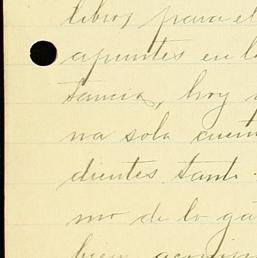 libros para el
apuntes en l
tancia, hoy
na sola cuen
dientes tant
mo de lo ga
bien